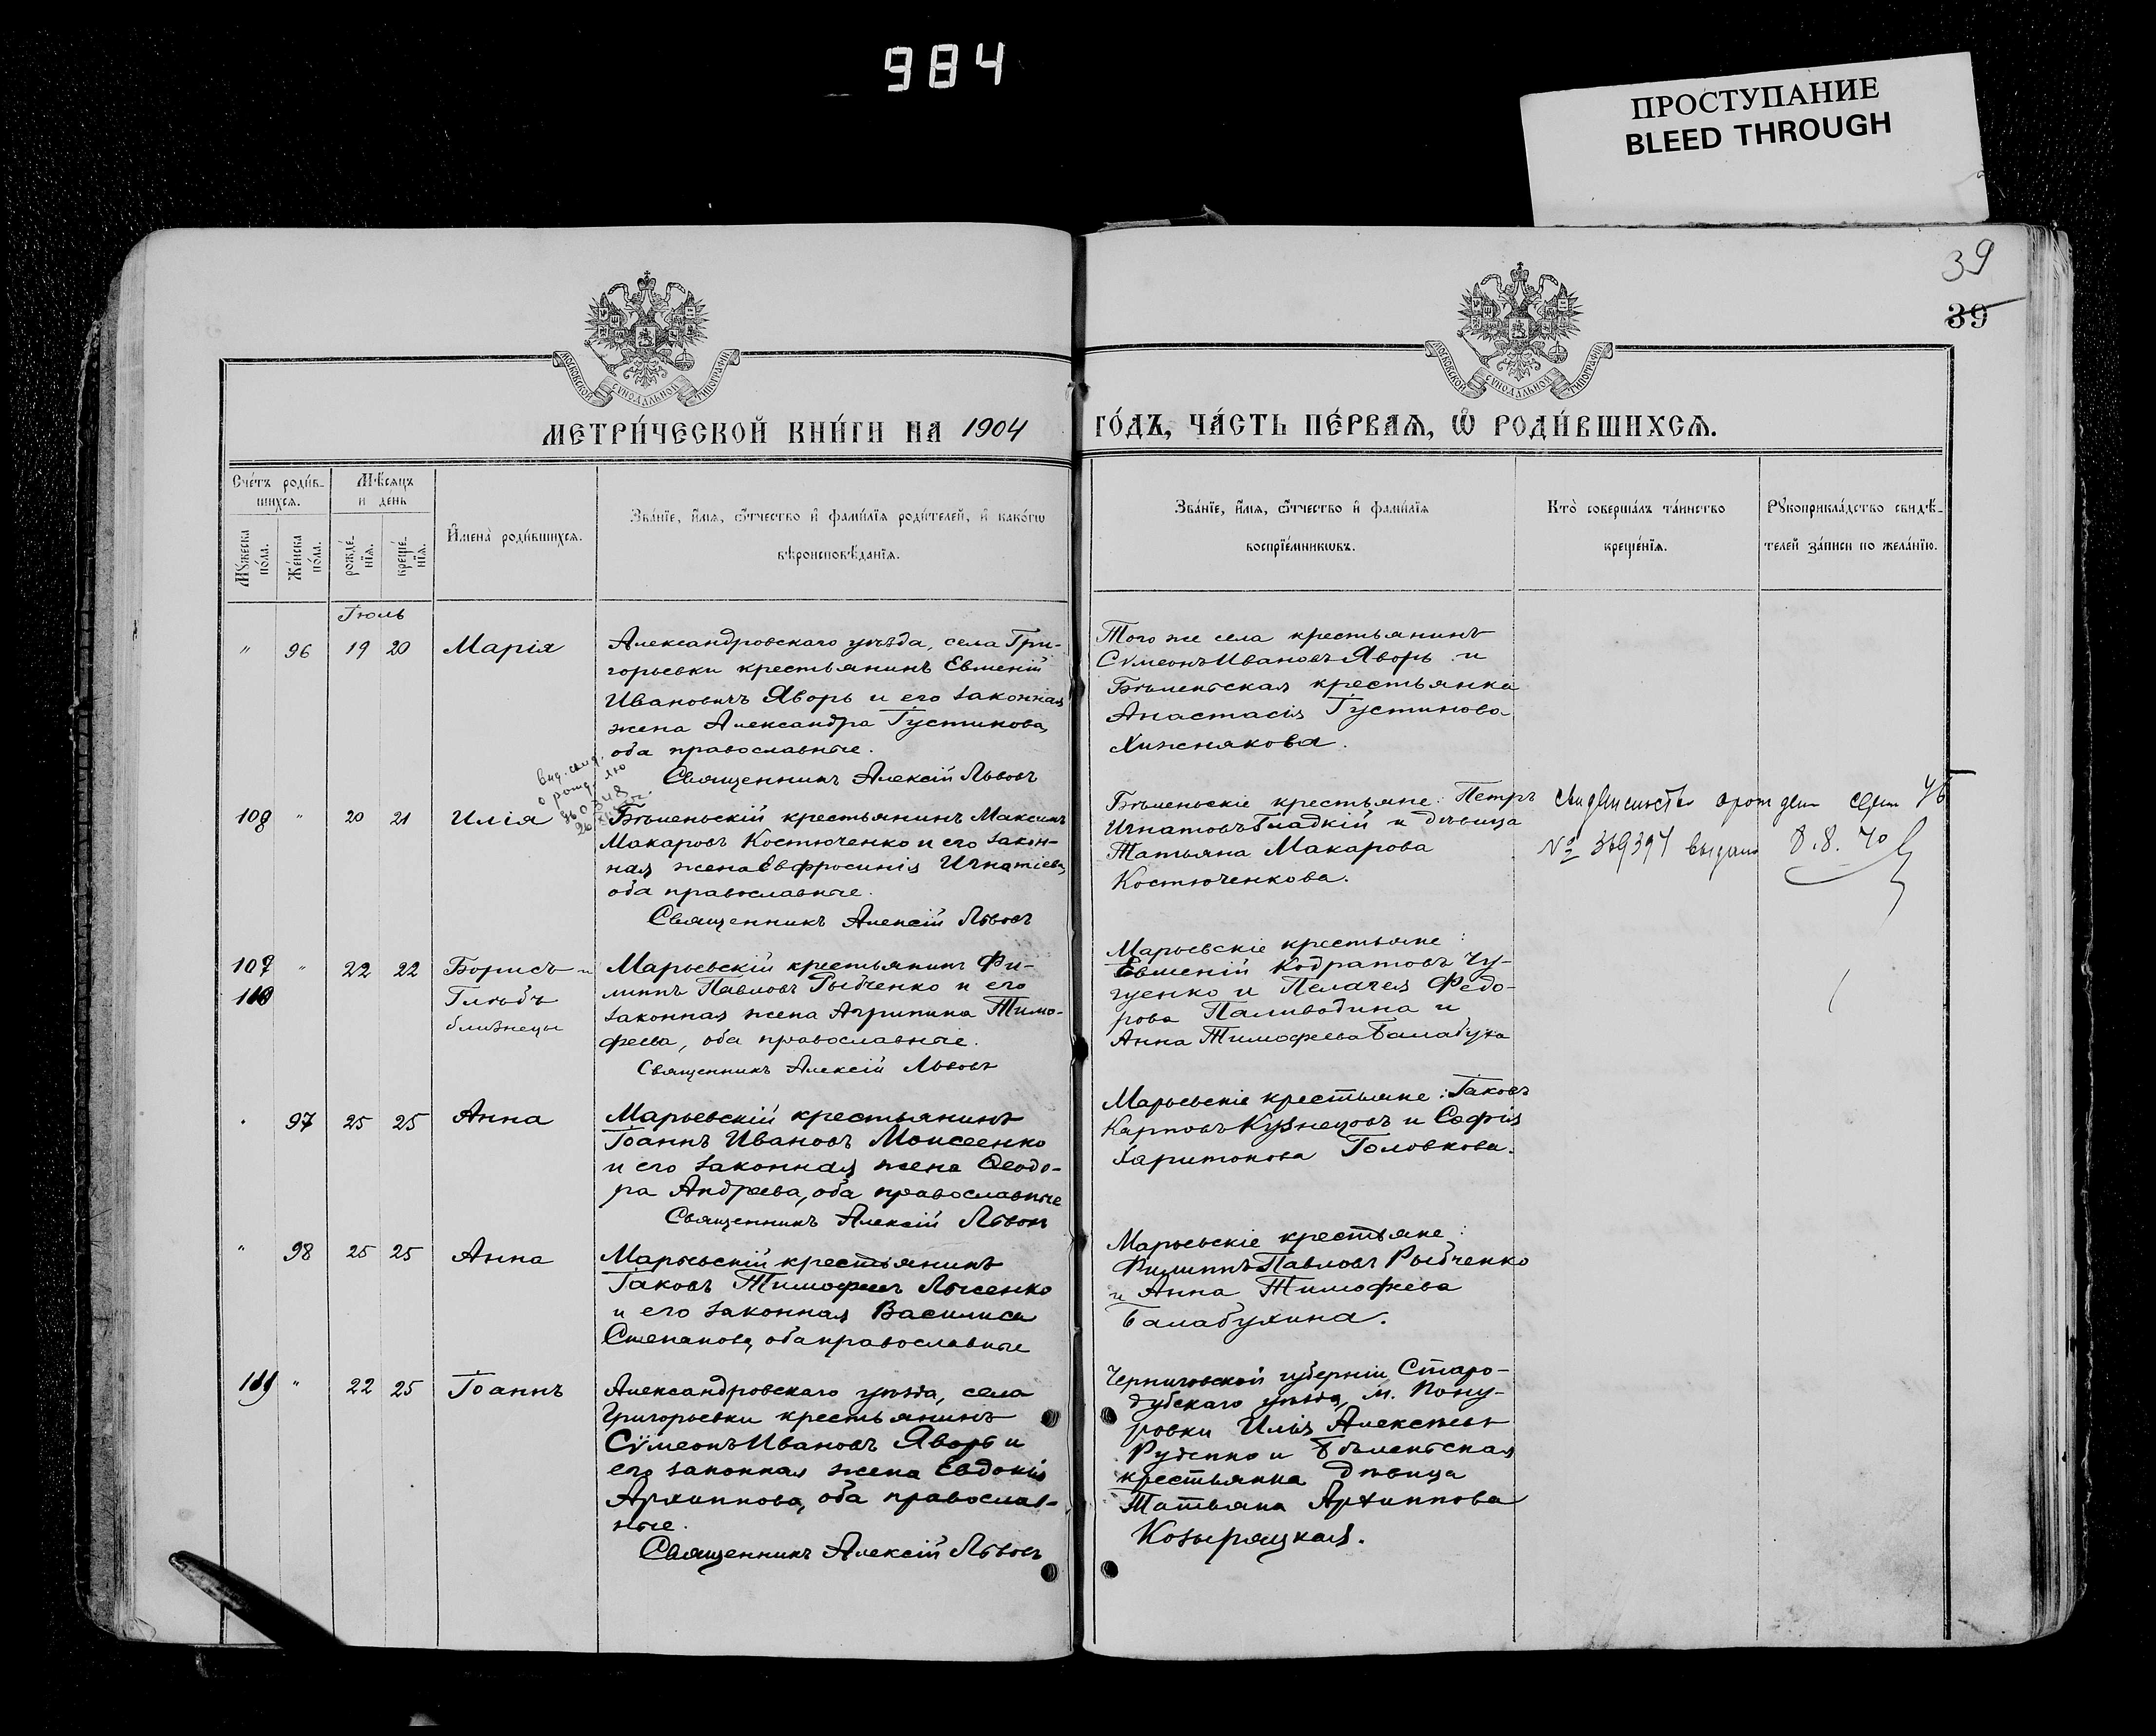 984
ПРОСТУПАНИЕ
BLEED THROUGH
39
39
МОСКОВСКОЙ СѴНОДАЛЬНОЙ ТИПОГРАФІИ
МОСКОВСКОЙ СѴНОДАЛЬНОЙ ТИПОГРАФІИ
МЕТРИ́ЧЕСКОЙ КНИ́ГИ НА 1904 ГО́ДЪ, ЧА́СТЬ ПЕ́РВАѦ, Ѡ҆ РОДИ́ВШИХСѦ.
Сче́тъ роди́в-
шихсѧ.
Мꙋ́жеска по́ла.
Же́нска по́ла.
Мѣ́сѧцъ
и де́нь
рожде́-
нїѧ.
креще́-
нїѧ.
И҆мена̀ роди́вшихсѧ.
Зва́нїе, и҆́мѧ, ѻ҆́тчество и҆ фами́лїѧ роди́телей, и҆ како́гѡ
вѣроисповѣ́данїѧ.
Зва́нїе, и҆́мѧ, ѻ҆́тчество и҆ фами́лїѧ
воспрїе́мникѡвъ.
Кто̀ соверша́лъ та́инство
креще́нїѧ.
Рꙋкоприкла́дство свидѣ́-
телей за́писи по жела́нїю.
Іюль
" 96 19 20 Марія
Александровскаго уѣзда, села Гри-
горьевки крестьянинъ Евменій
Ивановичъ Яворь и его законная
жена Александра Іустинова,
оба православные.
Священникъ Алексій Львовъ
Того же села крестьянинъ
Сѵмеонъ Ивановъ Яворь и
Бѣленьская крестьянка
Анастасія Іустинова
Хижнякова.
108 " 20 21 Илія
Бѣленьскій крестьянинъ Максимъ
Макаровъ Костюченко и его закон-
ная жена Евфросинія Игнатіева,
оба православные.
Священникъ Алексій Львовъ
Бѣленьскіе крестьяне: Петръ
Игнатовъ Гладкій и дѣвица
Татьяна Макарова
Костюченкова.
№ 369397 выдано 8.8.40
109 " 22 22 Борисъ и
110 Глѣбъ
близнецы
Марьевскій крестьянинъ Фи-
липпъ Павловъ Рыбченко и его
законная жена Агрипина Тимо-
феева, оба православные.
Священникъ Алексій Львовъ
Марьевскіе крестьяне:
Евменій Кодратовъ Чу-
гуенко и Пелагея Федо-
рова Паливодина и
Анна Тимофеева Балабуха
" 97 25 25 Анна
Марьевскій крестьянинъ
Іоаннъ Ивановъ Моисеенко
и его законная жена Ѳеодо-
ра Андреева, оба православные
Священникъ Алексій Львовъ
Марьевскіе крестьяне: Іаковъ
Карповъ Кузнецовъ и Софія
Харитонова Головкова.
" 98 25 25 Анна
Марьевскій крестьянинъ
Іаковъ Тимофеевъ Лысенко
и его законная Василиса
Степанова, оба православные
Марьевскіе крестьяне:
Филиппъ Павловъ Рыбченко
и Анна Тимофеева
Балабухина.
" 22 25 Іоаннъ
Александровскаго уѣзда, села
Григорьевки крестьянинъ
Сѵмеонъ Ивановъ Яворь и
его законная жена Евдокія
Архиппова, оба православ-
ные.
Священникъ Алексій Львовъ
Черниговской губерніи, Старо-
дубскаго уѣзда, м. Пону-
ровки Илія Алексѣевъ
Руденко и Бѣленьская
крестьянка дѣвица
Татьяна Архиппова
Козыряцкая.